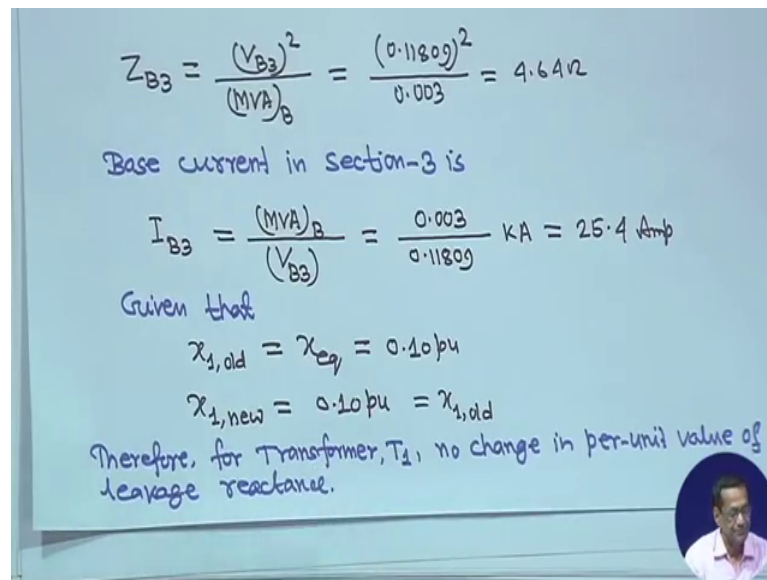 Z_B3 = (V_B3)² / (MVA)_B = (0.11809)² / 0.003 = 4.64Ω
Base current in section-3 is
I_B3 = (MVA)_B / (V_B3) = 0.003 / 0.11809 KA = 25.4 Amp
Given that
x_1,old = x_eq = 0.10 pu
x_1,new = 0.10 pu = x_1,old
Therefore, for Transformer, T_1, no change in per-unit value of
leakage reactance.